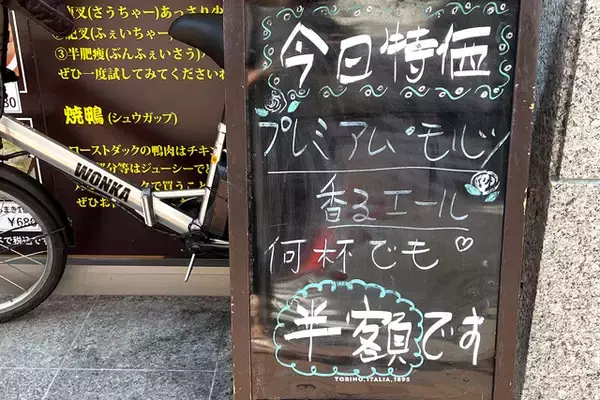 叉(さうちゃー)あっさり
肥叉(ふぇいちゃー
③半肥痩(ぶんふぇいさう)
ぜひ一度試してみてください
焼鴨(シュウガップ)
ローストダックの鴨肉はチキ
部分等はジューシーでと
クで買うこと
ぜひお
WONKA
¥680
で税込です
今日特価
プレミアム・モルツ
香るエール
何杯でも♡
半額です
TORINO, ITALIA, 1895